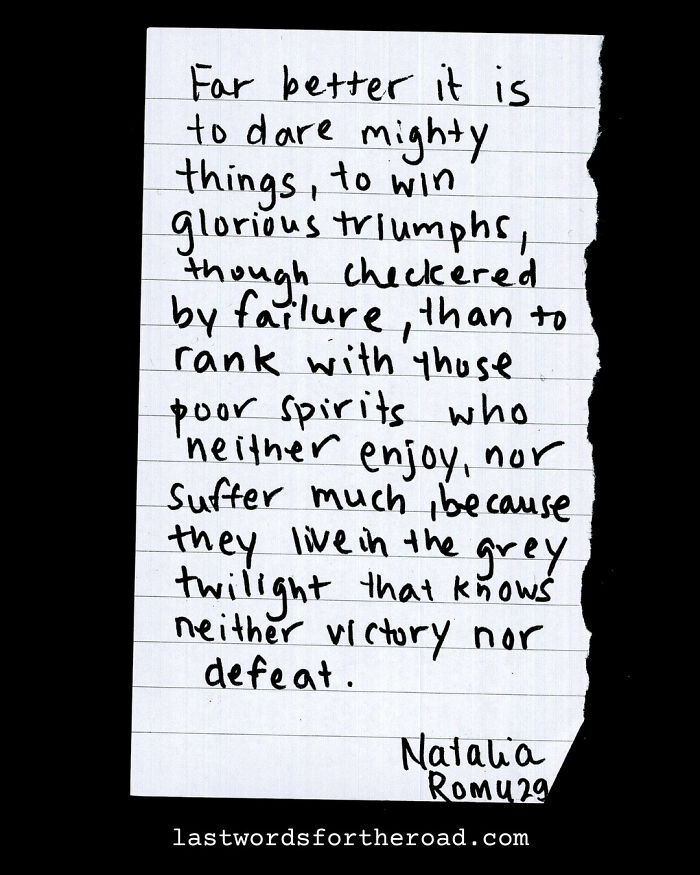 Far better it is
to dare mighty
things, to win
glorious triumphs,
though checkered
by failure, than to
rank with those
poor spirits who
neither enjoy, nor
suffer much, because
they live in the grey
twilight that knows
neither victory nor
defeat.
Natalia
Romu29
lastwordsfortheroad.com